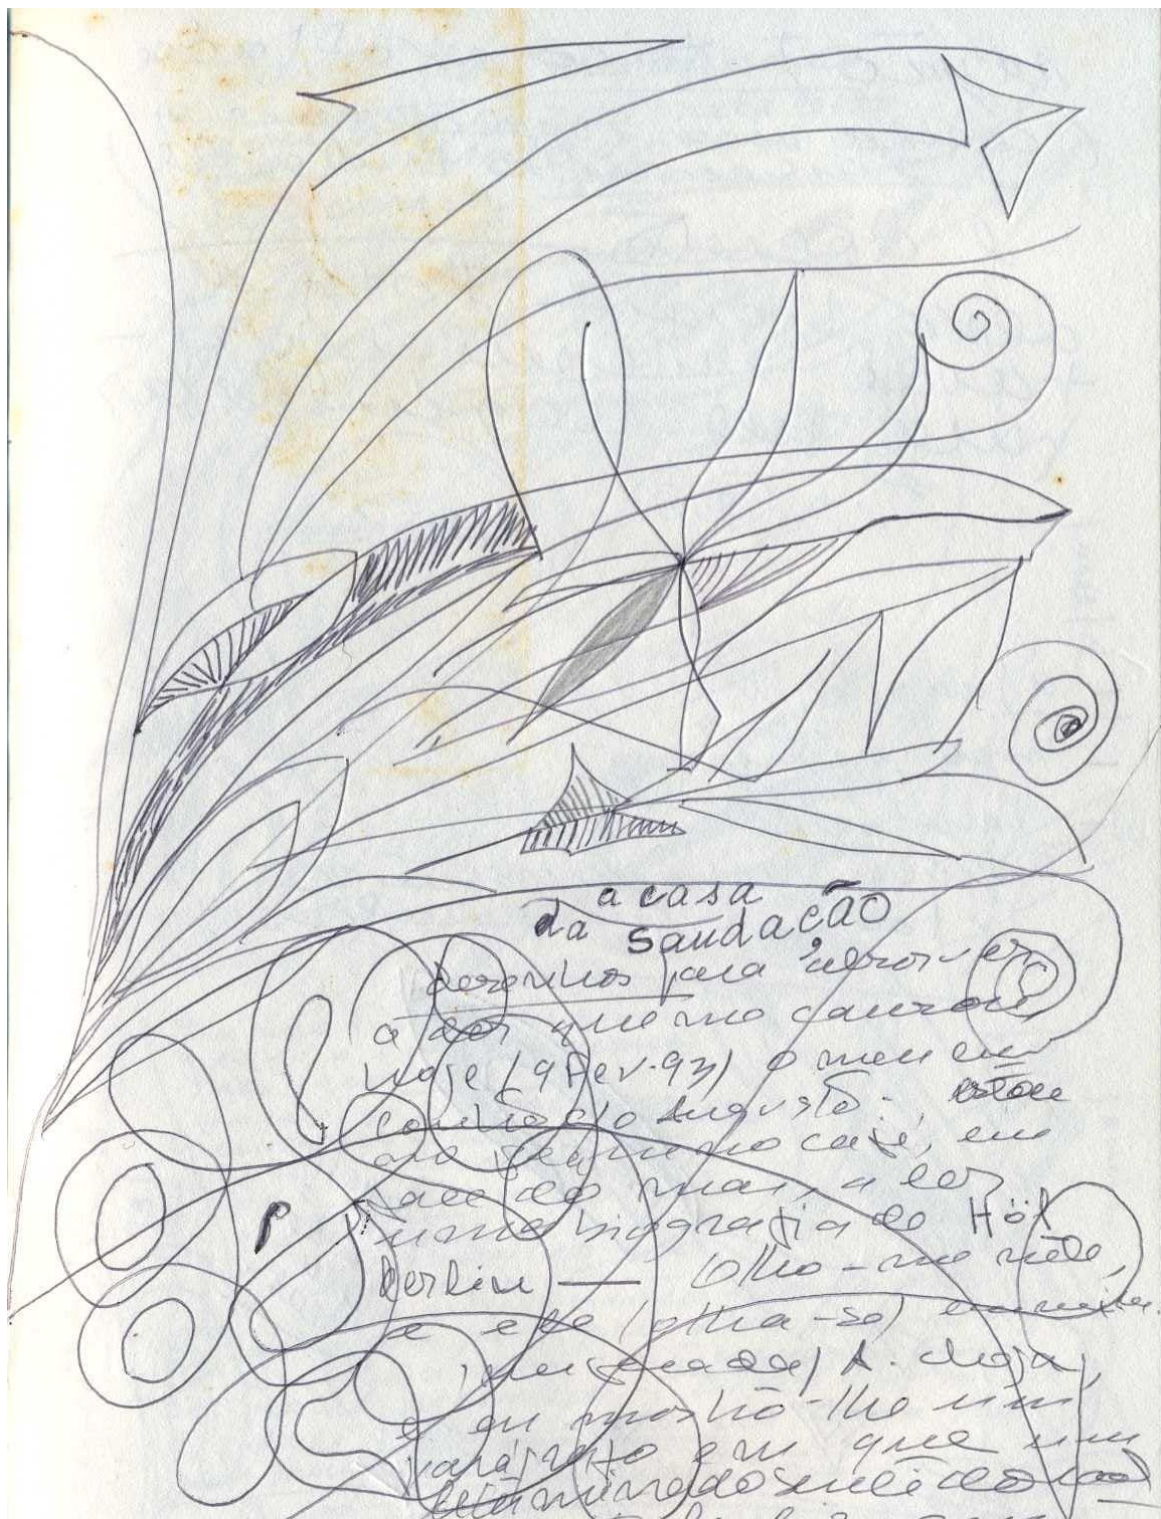 a casa
da saudação
desenhos para absorver
a dor que me causou
hoje (9 Fev. 93) o meu en
contro c/o Augusto: estou
no pequeno café, em
face do mar, a ler
uma biografia de Höl
derlin — Olho-me nele,
e ele (olha-se) em mim.
A. chega,
e eu mostro-lhe um
parágrafo em que um
determinado sentido